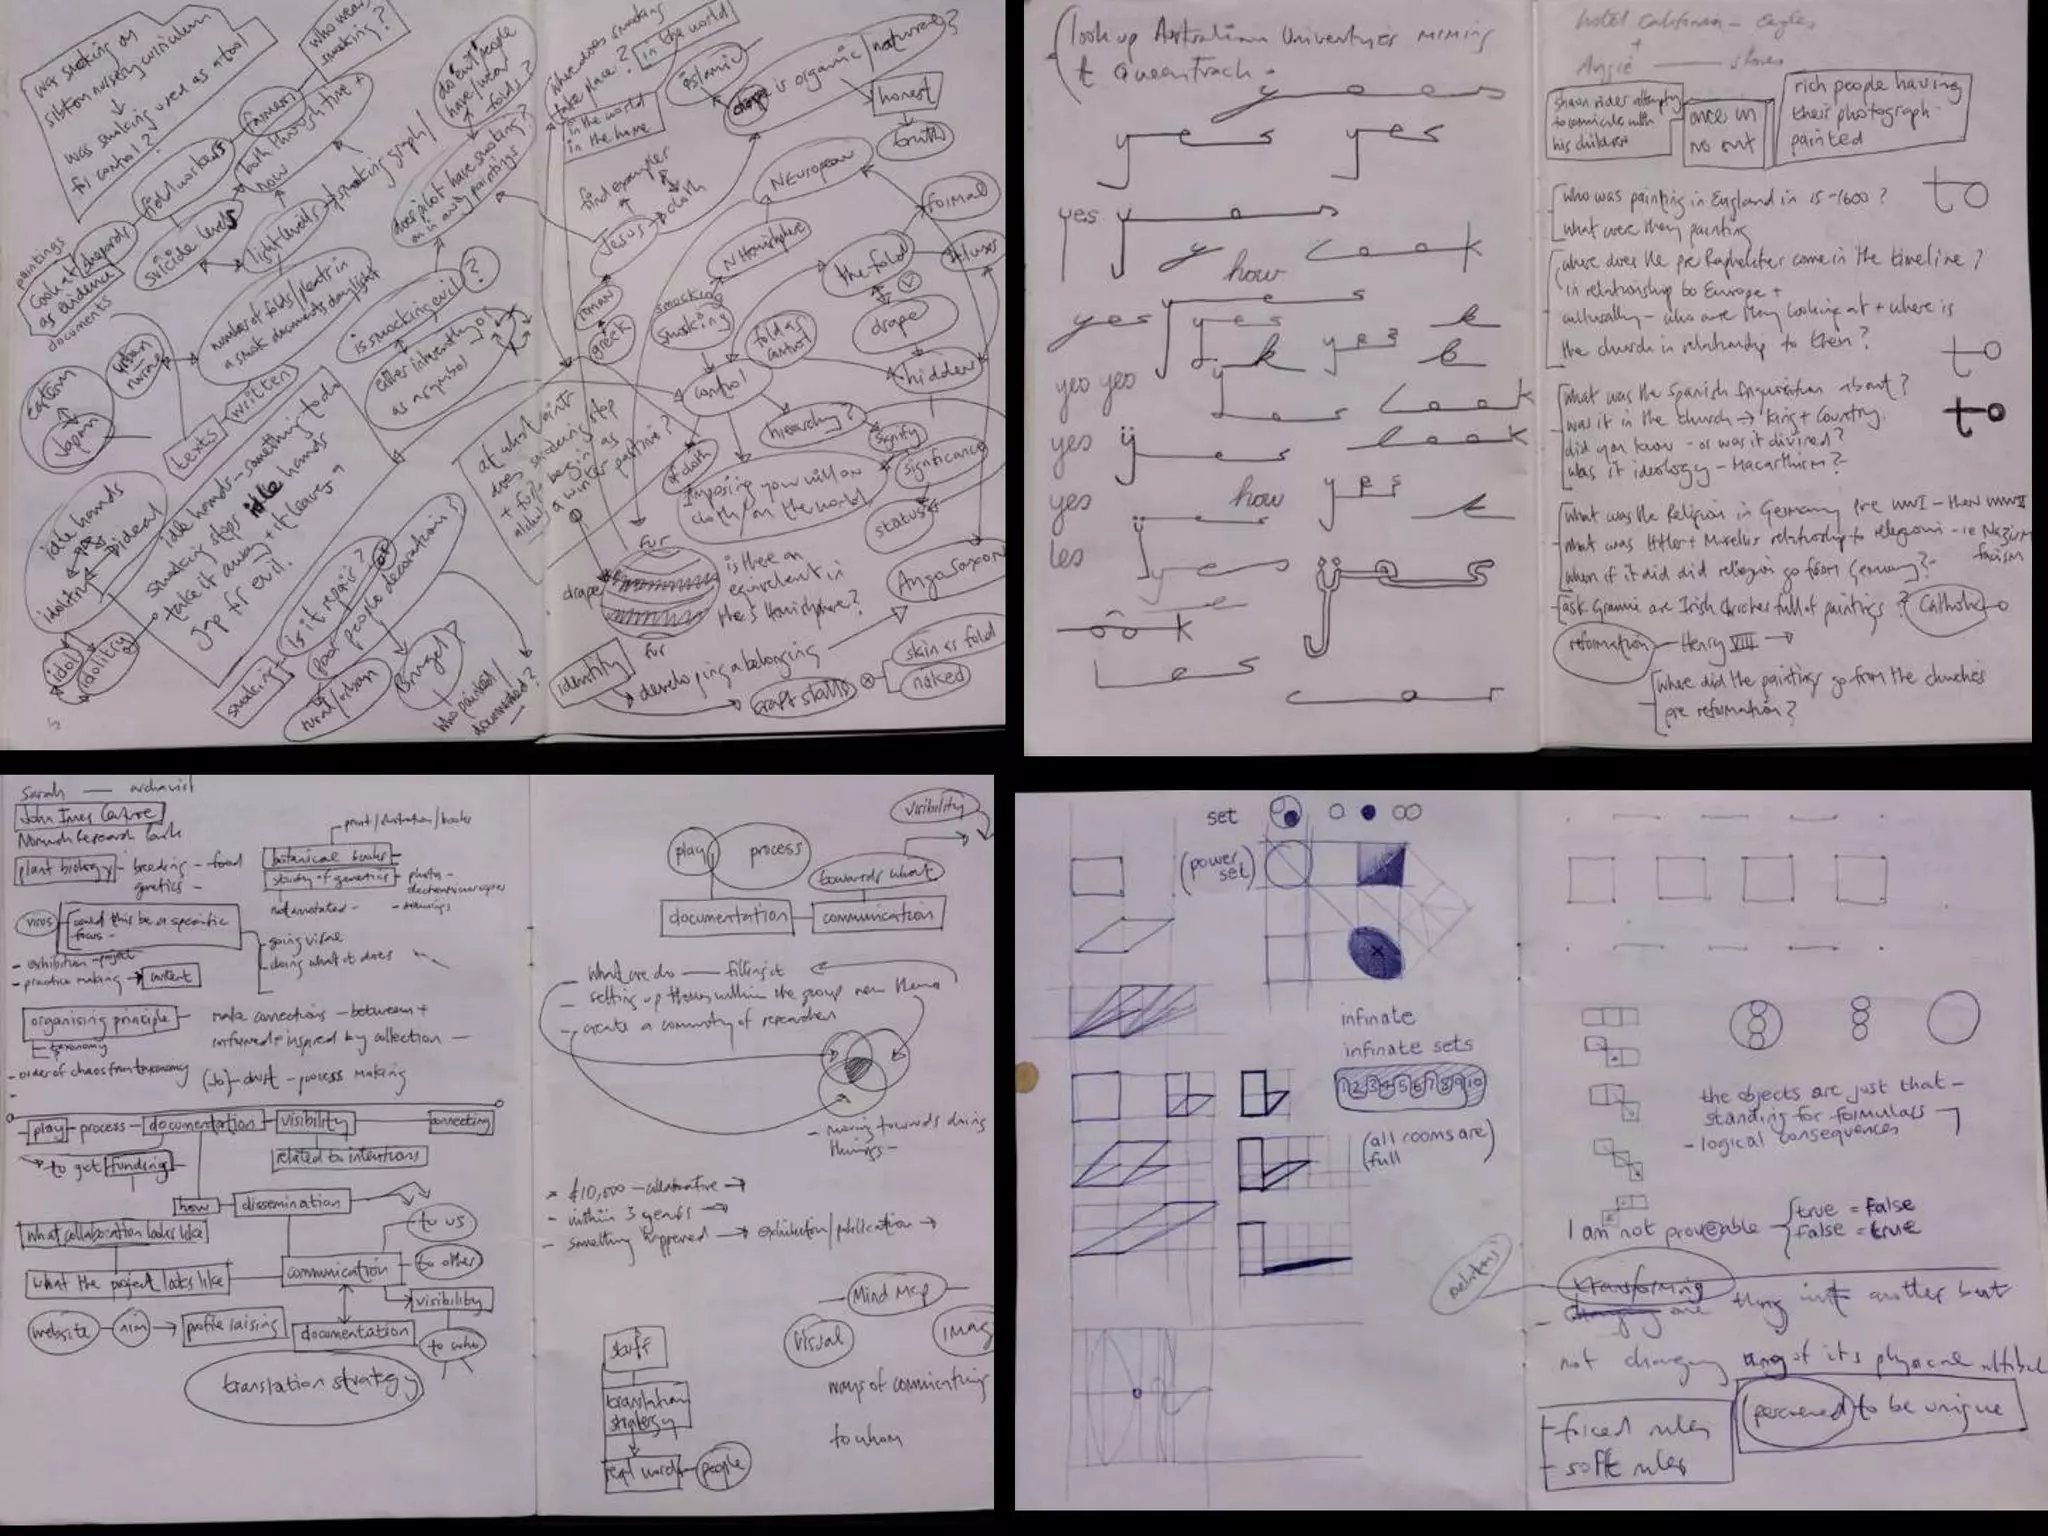 was smocking on
sibton nursery curriculum
was smocking used as a tool
for control?
who wears
smocking?
farmers
field workers
both through time +
now
suicide levels
light levels
smocking graph/
do Inuit people
have/wear
folds?
does pilot have smocking?
paintings
Look at shepards
as evidence
documents
number of folds/pleats in
a smock documents daylight
is smocking evil?
either inherently or
as a symbol
urban
rural
eastern
Japan
texts
written
idle hands
idle hands - something to do
smocking stops idle hands
take it away + it leaves a
gap for evil.
idolitry
idol
idolitry
is it repair?
poor people decorations?
smocking
rural/urban
Bruegel?
who painted/
documented?
where does smocking
take place?
in the world
in the world
in the home
islamic
drape is organic/nature?
honest
truth
find examples
Jesus
cloth
roman
greek
N European
N Hemisphere
smocking
smocking
formal
the fold
drape
hidden
fold as
control
control
hierarchy?
signify
significance
status
of cloth
imposing your will on
cloth/on the world
at what points
does smocking stop
+ fur begin as
a winter pattern?
fur
drape
fur
is there an
equivalent in
the S Hemisphere?
Anglo Saxon
identity
developing a belonging
craft skills
skin as fold
naked
look up Australian Universities mining
& Queentrack.
yes
yes
yes
yes
how
Look
yes
yes
yes
k
yes
yeo yeo
Look
yes
look
yes
how
yes
les
yes
look
Les
hotel california - eagles
+
Angie
once in
no out
rich people having
their photograph
painted
his children
who was painting in England in 15-1600?
what were they painting
where does the pre Raphaelites come in the timeline?
in relationship to Europe +
culturally - who are they looking at + where is
the church in relationship to them?
to
to
to
What was the Spanish Inquisition about?
was it in the church → King + Country.
did you know - or was it divined?
was it ideology - Macarthism?
what was the Religion in Germany pre WWI - then WWII
what was Hitler + Mussellini relationship to relegion - ie Nazism
facism
when if it did did religion go from Germany?
ask Grannie are Irish churches full of paintings? Catholic
reformation - Henry VIII →
where did the paintings go from the churches
pre reformation?
Sarah — archavist
John Innes Centre
Norwich Research Park
plant biology - breeding - food
genetics -
print/illustration/books
botanical books
study of genetics - photos
not annotated -
- drawings
virus
could this be a specific
focus -
- going viral
- doing what it does
- exhibition - project
- practice making → content
organising principle
taxonomy
make connections - between +
informed + inspired by collection -
- order of chaos from taxonomy
- process making
play - process - documentation - visibility
connecting
to get funding
related to intentions
how - dissemination
What collaboration looks like
to us
What the project looks like
communication
to other
visibility
website - aim → profile raising
documentation
to who
translation strategy
visibility
play
process
towards what
documentation
communication
- What we do — filling it
- setting up themes within the group new themes
- create a community of researchers
- moving towards doing
things -
£10,000 - collaborative →
- within 3 years →
- something happened → exhibition/publication →
Mind Map
Visual
imag
staff
translation
strategy
real world - people
ways of communicating
to whom
set
(power
set)
infinate
infinate sets
1 2 3 4 5 6 7 8 9 10
(all rooms are
full)
the objects are just that -
standing for formulass
- logical consequences
I am not proveable
true = False
false = true
transforming
- changing one thing into another but
not changing any of its physical attibut
perceived to be unique
- forced rules
- soft rules